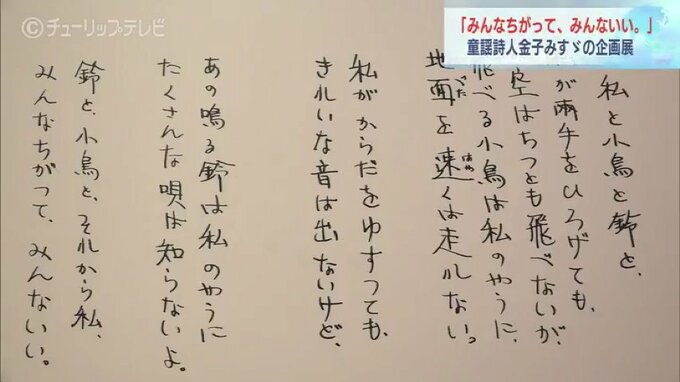 ©チューリップテレビ
「みんなちがって、みんないい。」
童謡詩人金子みすゞの企画展
私と小鳥と鈴と、
が両手をひろげても、
空はちつとも飛べないが、
飛べる小鳥は私のやうに、
地面を速くは走れない。
じべた
はや
私がからだをゆすつても、
きれいな音は出ないけど、
あの鳴る鈴は私のやうに
たくさんな唄は知らないよ。
鈴と、小鳥と、それから私、
みんなちがつて、みんないい。